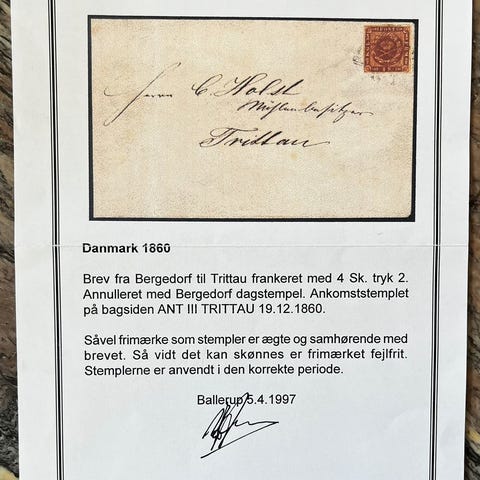 Herrn C. Holst
Mühlenbesitzer
Trittau
Danmark 1860
Brev fra Bergedorf til Trittau frankeret med 4 Sk. tryk 2.
Annulleret med Bergedorf dagstempel. Ankomststemplet
på bagsiden ANT III TRITTAU 19.12.1860.
Såvel frimærke som stempler er ægte og samhørende med
brevet. Så vidt det kan skønnes er frimærket fejlfrit.
Stemplerne er anvendt i den korrekte periode.
Ballerup 5.4.1997